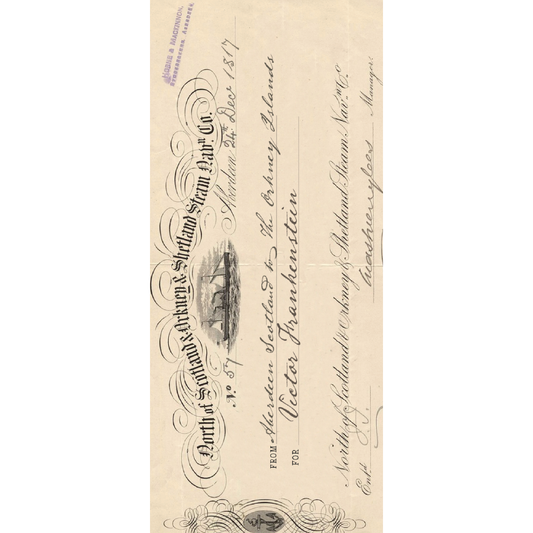 North of Scotland & Orkney & Shetland Steam Navn. Co.
No. 57
Aberdeen 24th Decr 1817
FROM Aberdeen Scotland to The Orkney Islands
FOR Victor Frankenstein
North of Scotland & Orkney & Shetland Steam Navn. Co.
Entd.
Manager.
& MACKINNON,
ABERDEEN.